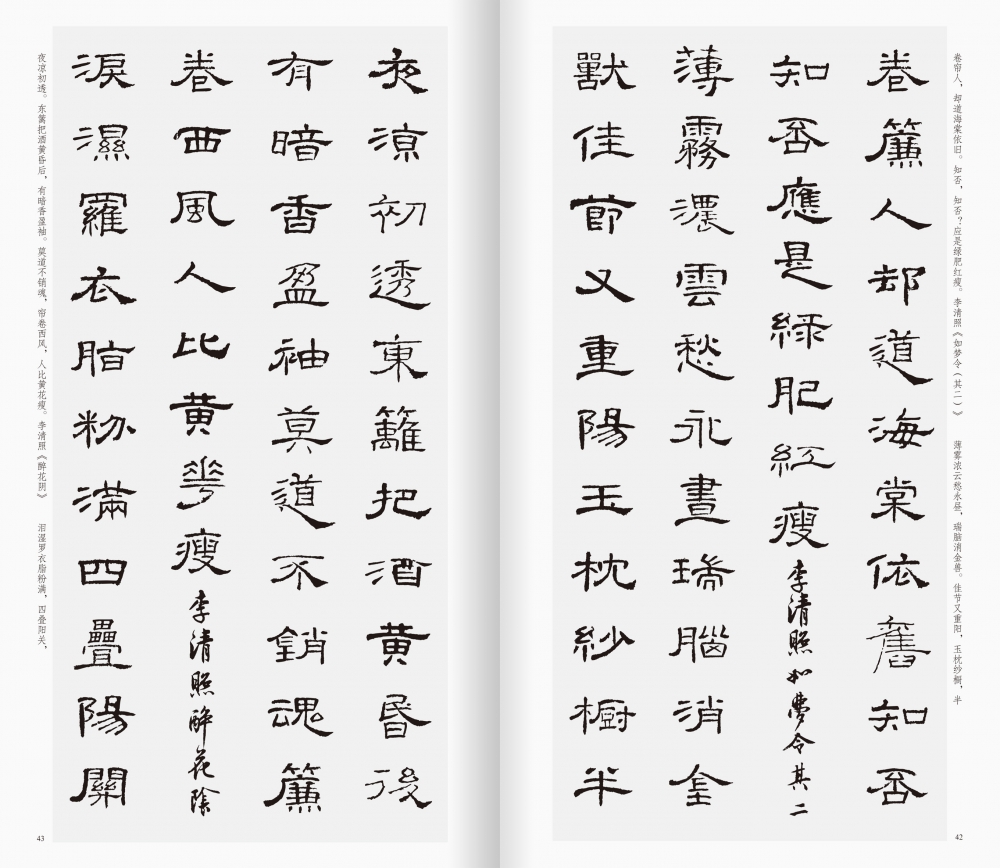 卷帘人，却道海棠依旧。知否，知否？应是绿肥红瘦。李清照《如梦令（其二）》 薄雾浓云愁永昼，瑞脑消金兽。佳节又重阳，玉枕纱橱，半
卷簾人却道海棠依舊知否
知否應是綠肥紅瘦 李清照如夢令其二
薄霧濃雲愁永晝瑞腦消金
獸佳節又重陽玉枕紗櫥半
42
夜涼初透東籬把酒黄昏後
有暗香盈袖莫道不銷魂簾
卷西風人比黄花瘦 李清照醉花陰
淚濕羅衣脂粉滿四疊陽關
夜凉初透。东篱把酒黄昏后，有暗香盈袖。莫道不销魂，帘卷西风，人比黄花瘦。李清照《醉花阴》 泪湿罗衣脂粉满，四叠阳关，
43